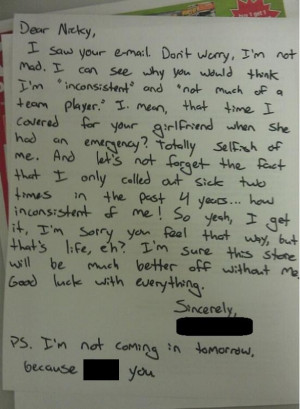 Dear Nicky,
I saw your e-mail. Don't worry, I'm not
mad. I can see why you would think
I'm "inconsistent" and "not much of a
team player." I mean, that time I
covered for your girlfriend when she
had an emergency? Totally selfish of
me. And let's not forget the fact
that I only called out sick two
times in the past 4 years... how
inconsistent of me! So yeah, I get
it, I'm sorry you feel that way, but
that's life, eh? I'm sure this store
will be much better off without me.
Good luck with everything.
Sincerely,
PS. I'm not coming in tomorrow,
because you